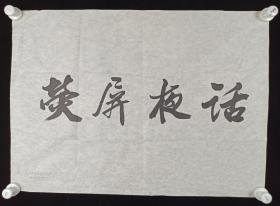 荧屏夜话